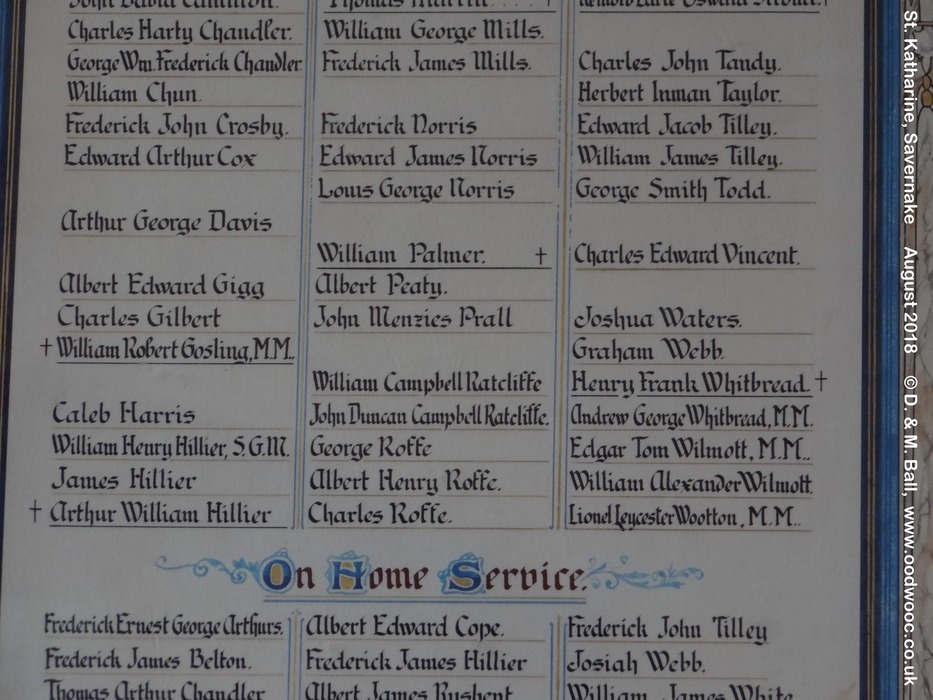 Charles Harty Chandler.
George Wm. Frederick Chandler
William Chun.
Frederick John Crosby.
Edward Arthur Cox
Arthur George Davis
Albert Edward Gigg
Charles Gilbert
† William Robert Gosling, M.M.
Caleb Harris
William Henry Hillier, S.G.M.
James Hillier
† Arthur William Hillier
Thomas †
William George Mills.
Frederick James Mills.
Frederick Norris
Edward James Norris
Louis George Norris
William Palmer. †
Albert Peaty.
John Menzies Prall
William Campbell Ratcliffe
John Duncan Campbell Ratcliffe.
George Roffe
Albert Henry Roffe.
Charles Roffe.
Charles John Tandy.
Herbert Inman Taylor.
Edward Jacob Tilley.
William James Tilley.
George Smith Todd.
Charles Edward Vincent.
Joshua Waters.
Graham Webb.
Henry Frank Whitbread †
Andrew George Whitbread, M.M.
Edgar Tom Wilmott, M.M..
William Alexander Wilmott.
Lionel Leycester Wootton, M.M..
On Home Service.
Frederick Ernest George Arthurs.
Frederick James Belton.
Thomas Arthur Chandler
Albert Edward Cope.
Frederick James Hillier
Albert James Rushent
Frederick John Tilley
Josiah Webb.
William James White
St. Katharine, Savernake August 2018 © D. & M. Ball, www.oodwooc.co.uk